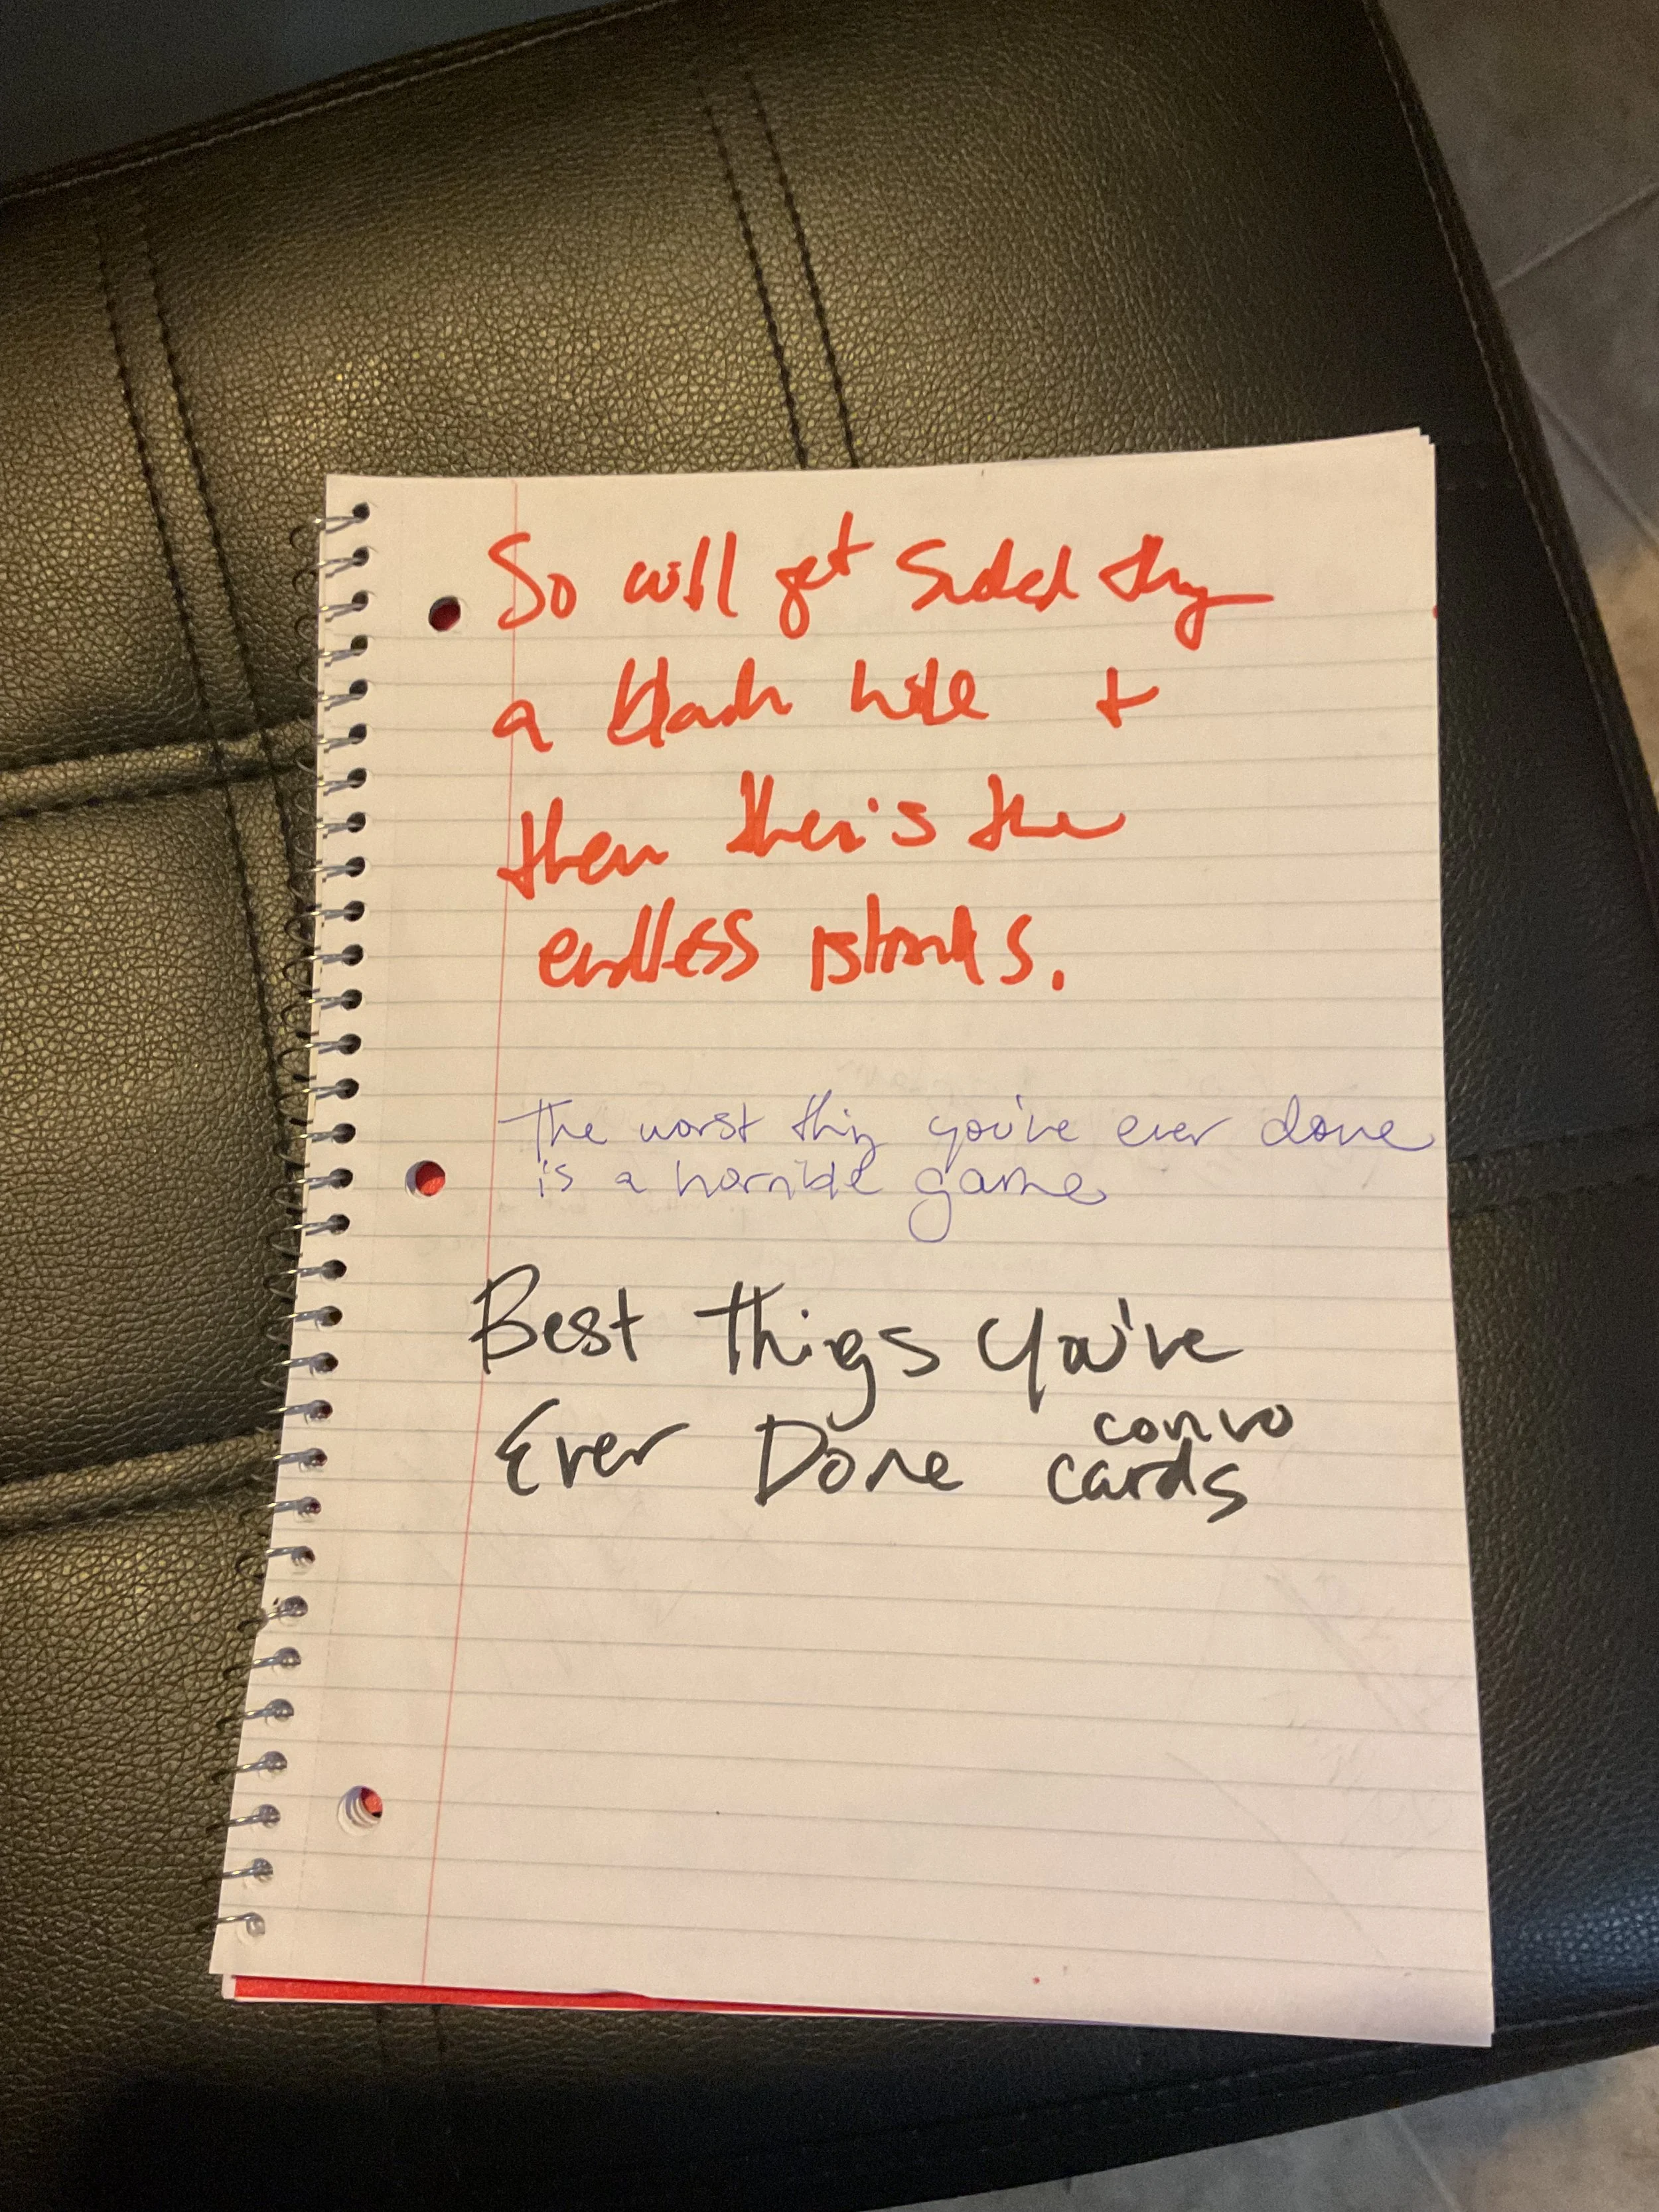 So will get sucked thru
a black hole +
then ther's the
endless islands.
The worst thing you've ever done
is a horrible game
Best Things You've
Ever Done convo
cards